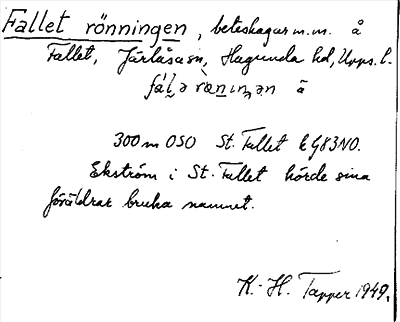 Fallet rönningen, beteshagar m.m. å
Fallet, Järlåsa sn, Hagunda hd, Upps. l.
300 m OSO St. Fallet E G83NO.
Ekström i St. Fallet hörde sina
föräldrar bruka namnet.
K.-H. Tapper 1949.